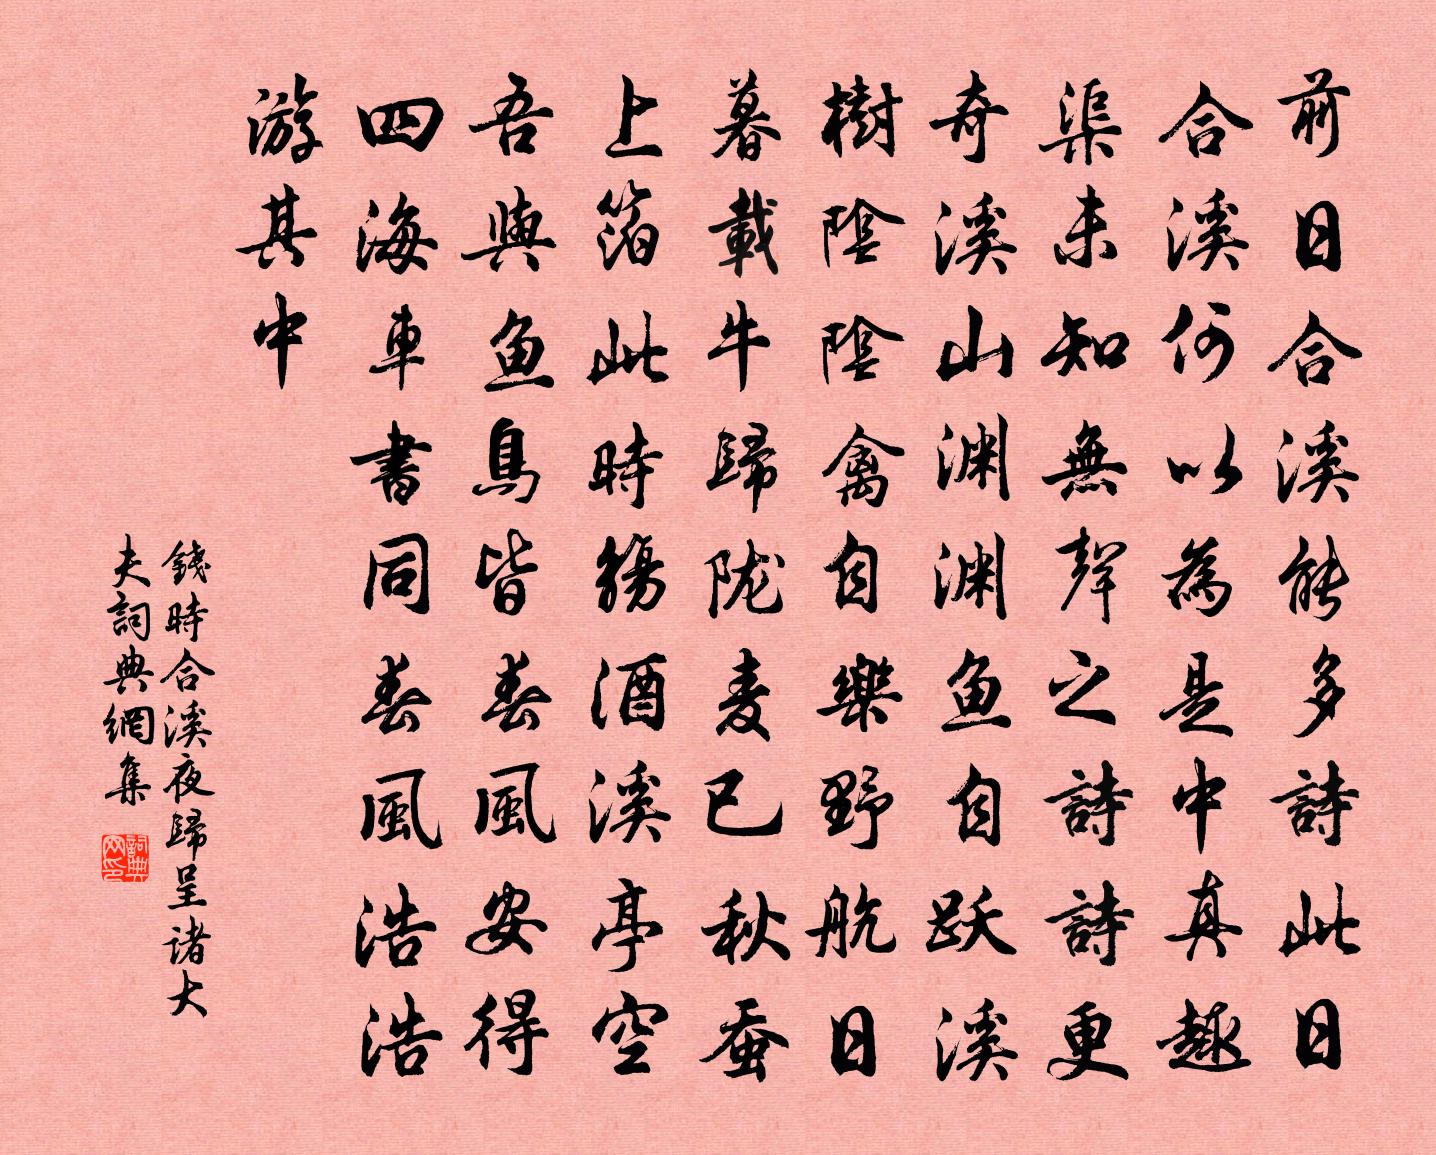 前日合溪能多詩此日
合溪何以為是中真趣
渠未知無聲之詩詩更
奇溪山渊渊魚自跃溪
樹陰陰禽自樂野航日
暮載牛歸陇麦已秋蚕
上箔此時觞酒溪亭空
吾與魚鳥皆春風安得
四海車書同春風浩浩
游其中
錢時合溪夜歸呈诸大
夫詞典網集
詞典网印